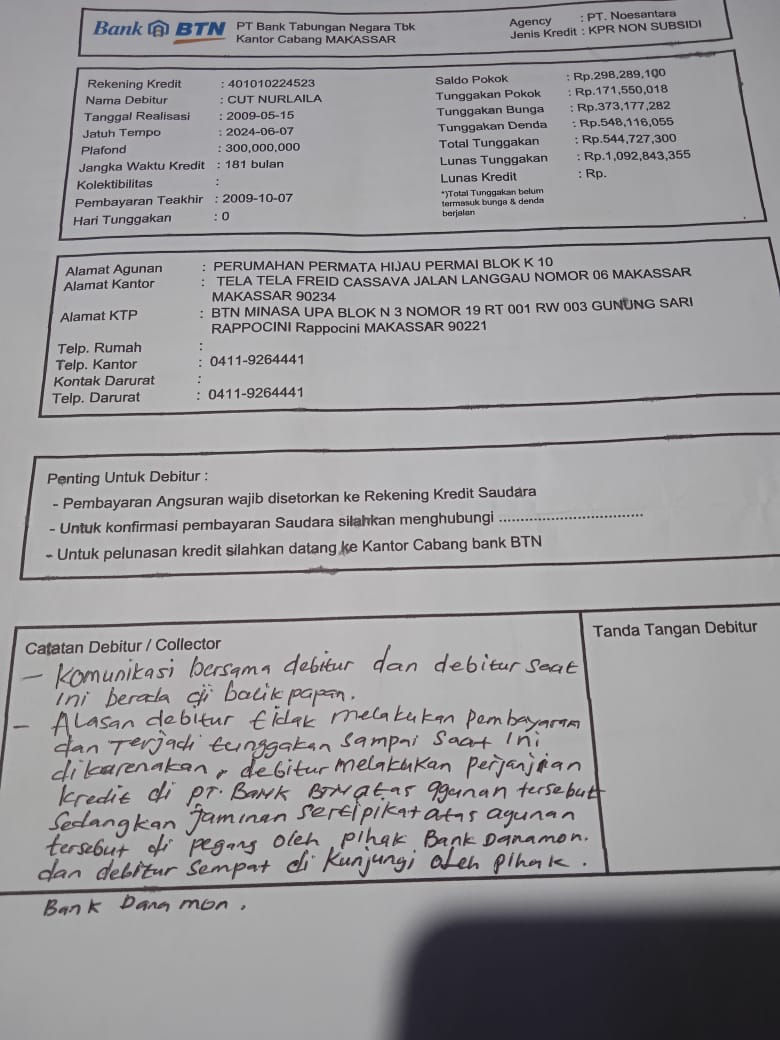 Bank BTN
PT Bank Tabungan Negara Tbk
Kantor Cabang MAKASSAR
Agency : PT. Noesantara
Jenis Kredit : KPR NON SUBSIDI
Rekening Kredit : 401010224523
Nama Debitur : CUT NURLAILA
Tanggal Realisasi : 2009-05-15
Jatuh Tempo : 2024-06-07
Plafond : 300,000,000
Jangka Waktu Kredit : 181 bulan
Kolektibilitas :
Pembayaran Teakhir : 2009-10-07
Hari Tunggakan : 0
Saldo Pokok : Rp.298,289,100
Tunggakan Pokok : Rp.171,550,018
Tunggakan Bunga : Rp.373,177,282
Tunggakan Denda : Rp.548,116,055
Total Tunggakan : Rp.544,727,300
Lunas Tunggakan : Rp.1,092,843,355
Lunas Kredit : Rp.
*)Total Tunggakan belum
termasuk bunga & denda
berjalan
Alamat Agunan : PERUMAHAN PERMATA HIJAU PERMAI BLOK K 10
Alamat Kantor : TELA TELA FREID CASSAVA JALAN LANGGAU NOMOR 06 MAKASSAR
MAKASSAR 90234
Alamat KTP : BTN MINASA UPA BLOK N 3 NOMOR 19 RT 001 RW 003 GUNUNG SARI
RAPPOCINI Rappocini MAKASSAR 90221
Telp. Rumah :
Telp. Kantor : 0411-9264441
Kontak Darurat :
Telp. Darurat : 0411-9264441
Penting Untuk Debitur :
- Pembayaran Angsuran wajib disetorkan ke Rekening Kredit Saudara
- Untuk konfirmasi pembayaran Saudara silahkan menghubungi ..................................
- Untuk pelunasan kredit silahkan datang ke Kantor Cabang bank BTN
Catatan Debitur / Collector
Tanda Tangan Debitur
- Komunikasi bersama debitur dan debitur saat
ini berada di balikpapan.
- Alasan debitur tidak melakukan pembayaran
dan Terjadi tunggakan sampai saat ini
dikarenakan, debitur melakukan perjanjian
kredit di PT. BANK BTN atas agunan tersebut
Sedangkan jaminan sertipikat atas agunan
tersebut di pegang oleh pihak Bank Danamon.
dan debitur sempat di kunjungi oleh pihak.
Bank Danamon.